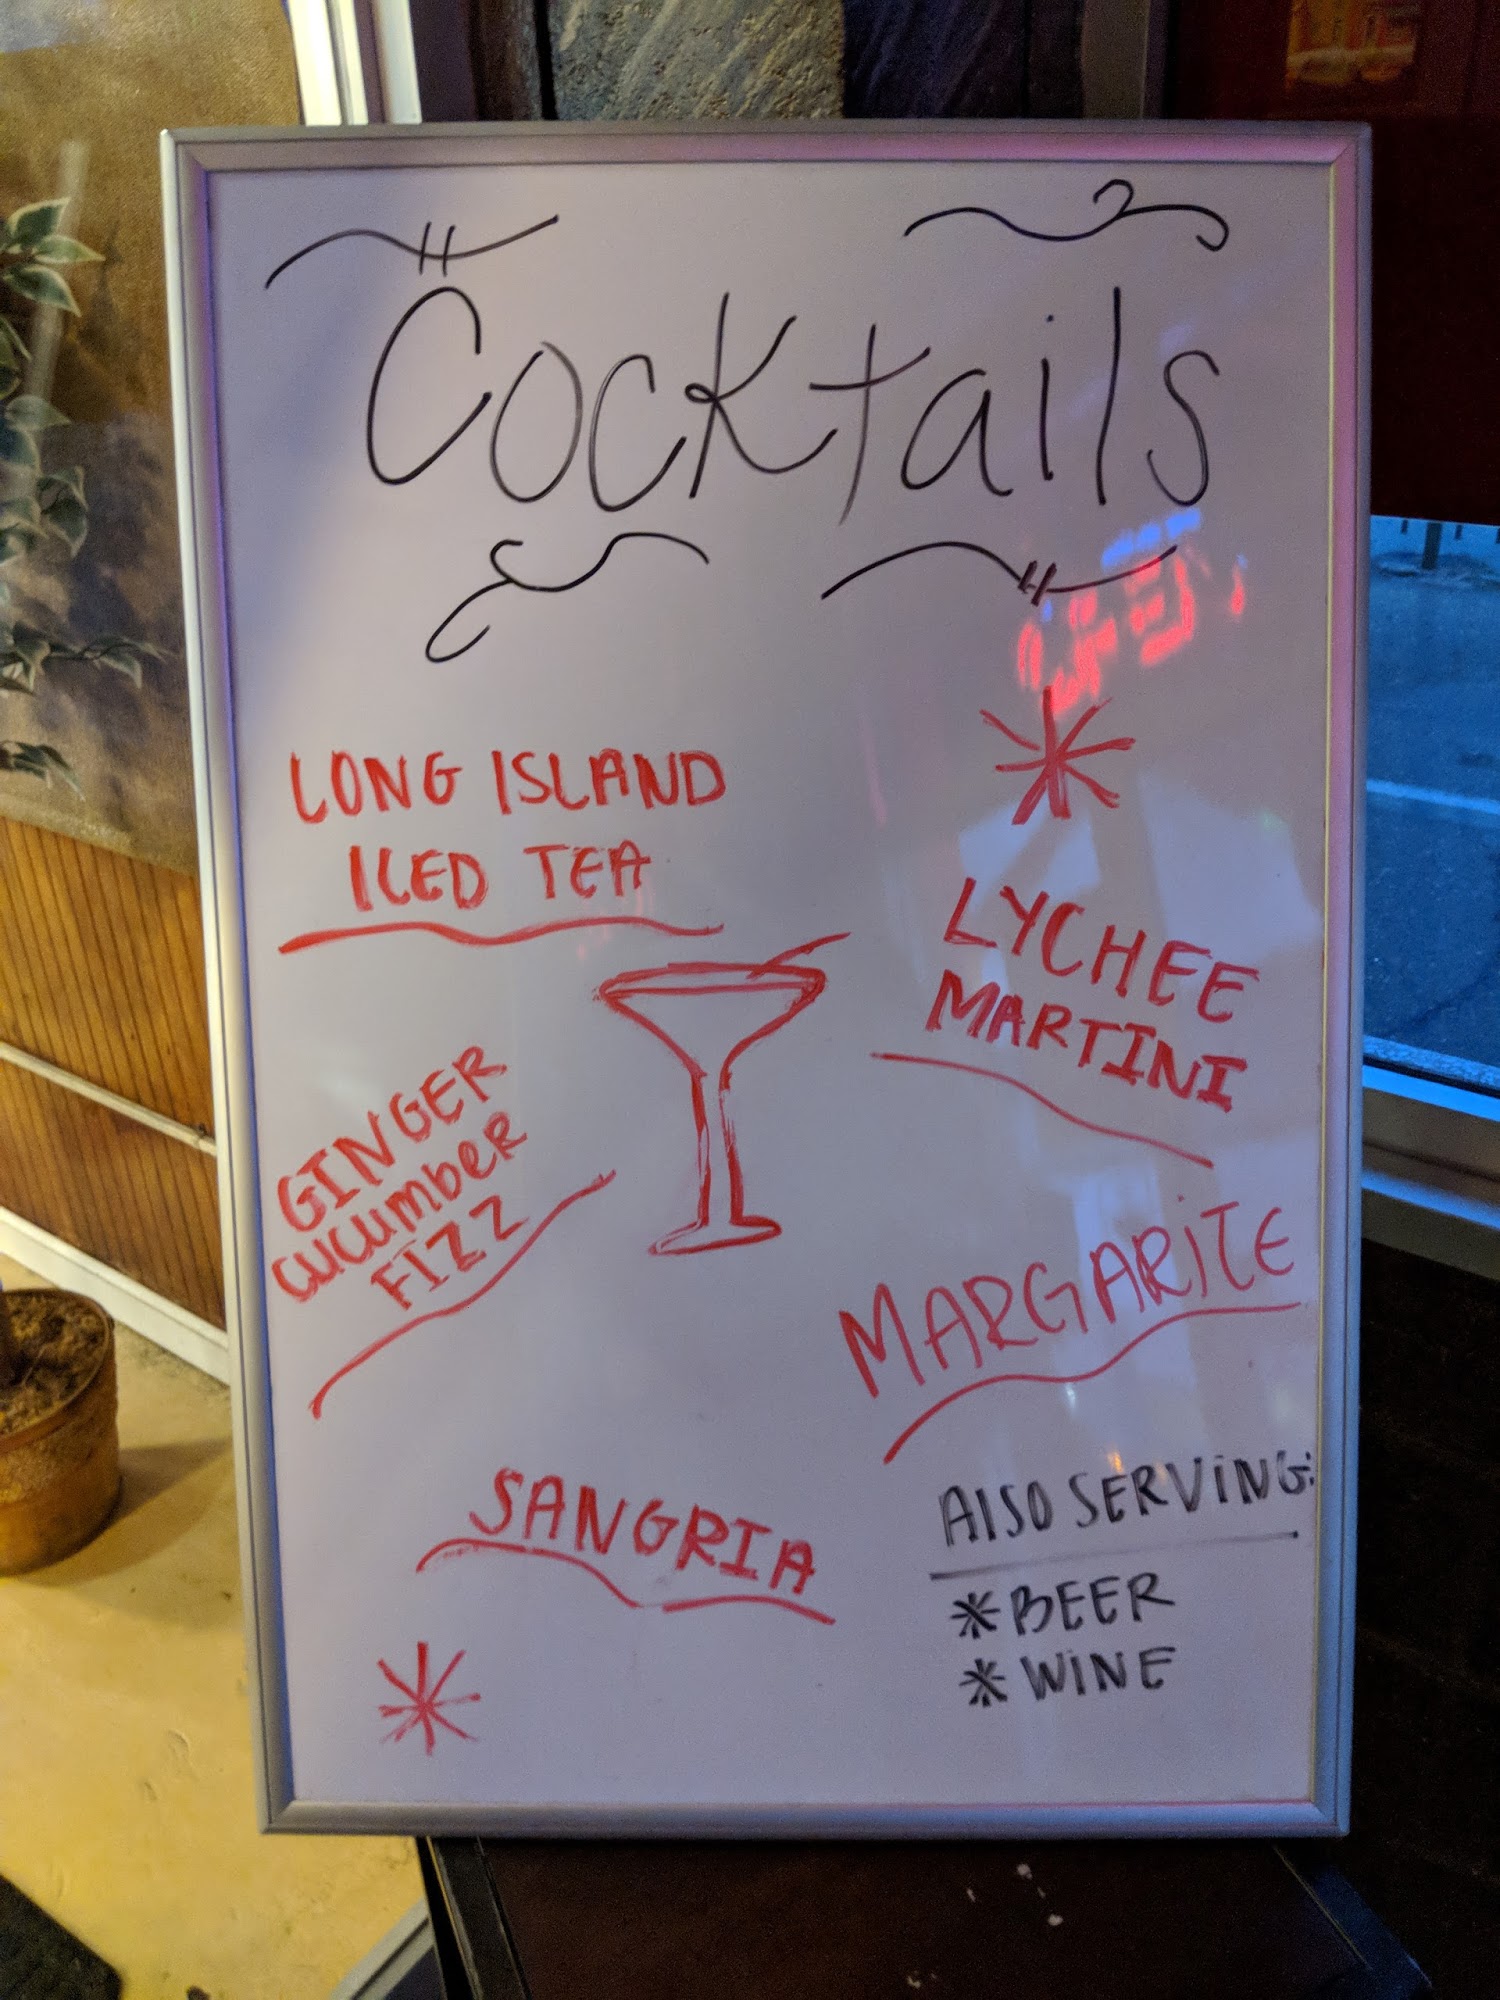 Cocktails
LONG ISLAND
ICED TEA
LYCHEE
MARTINI
GINGER
CUCUMbER
FIZZ
MARGARITE
SANGRIA
AlSO SERViNG:
* BEER
* WiNE